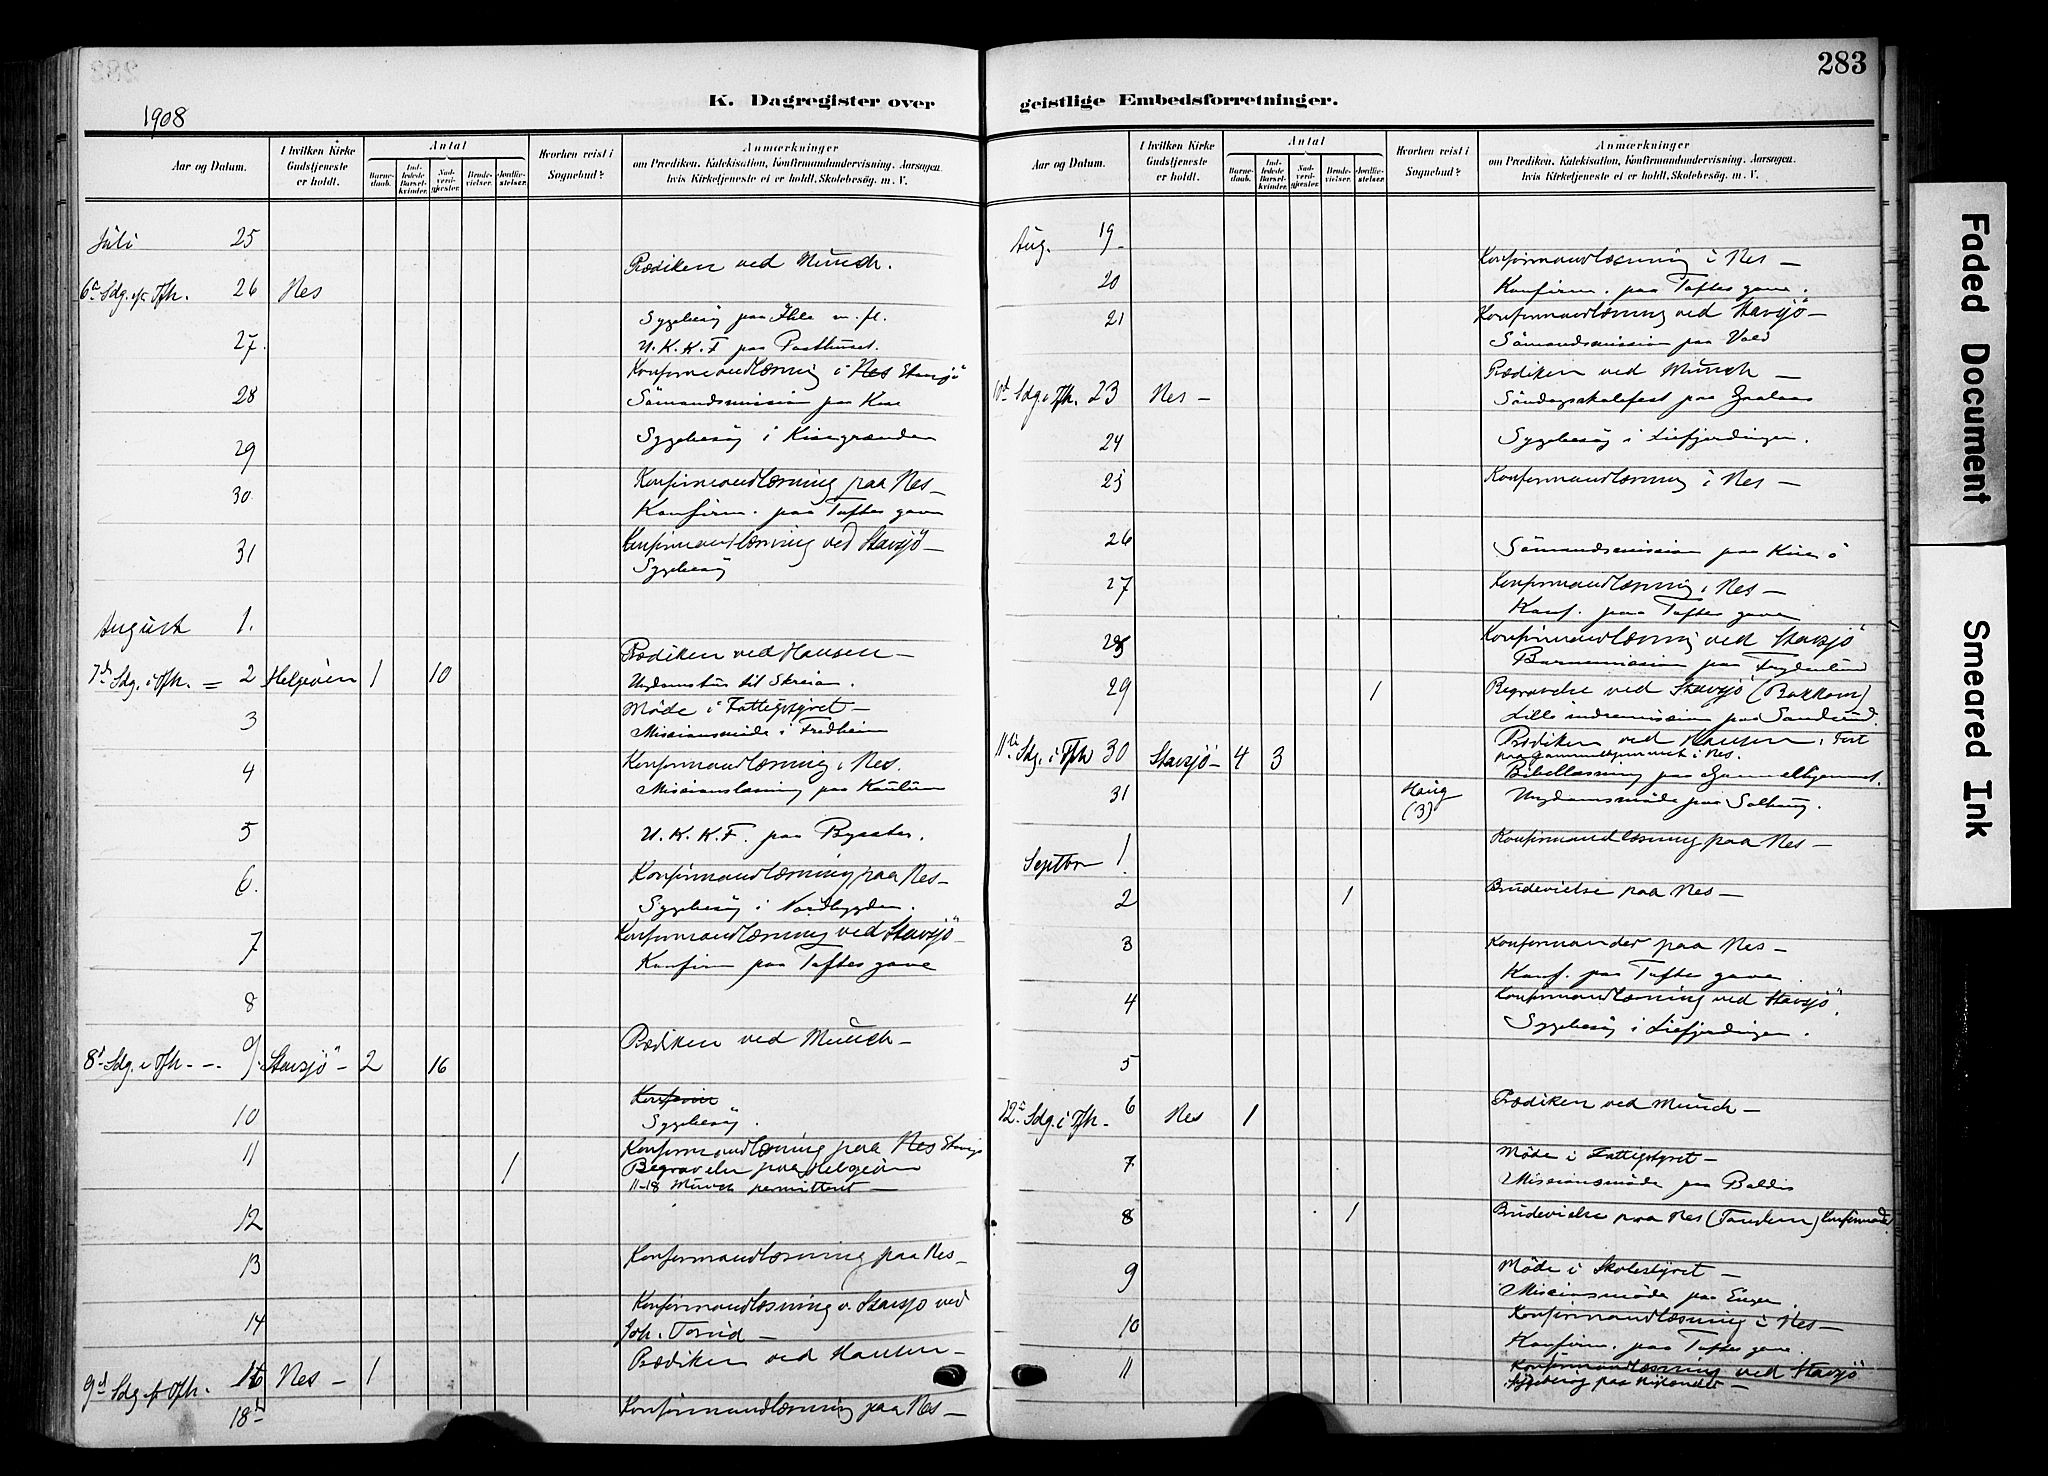 283
K. Dagregister over geistlige Embedsforretninger.
1908
Aar og Datum.
I hvilken Kirke Gudstjeneste er holdt.
Antal
Barnedaab.
Indledede Barselkvinder.
Nadverdgjester.
Brudevielser.
Jordfæstelser.
Hvorhen reist i Sognebud?
Anmærkninger
om Prædiken, Katekisation, Konfirmandundervisning, Aarsagen,
hvis Kirketjeneste ei er holdt, Skolebesøg. m. V.
Juli 25
6te Sdg. e. Tfh. 26 Nes Prædiken ved Münch.
27. Sygebesøg paa Ihle m. fl.
U. K. K. F paa Posthuset.
28 Konfirmandlæsning i Nes Stavsjö
Sömandsmission paa Kise
29 Sygebesøg i Kisegrænden
30 Konfirmandlæsning paa Nes –
Konfirm. paa Toftes gave
31 Konfirmandlæsning ved Stavsjö –
Sygebesøg
August 1.
7de Sdg. i Tfh. = 2 Helgøen 1 10 Prædiken ved Hansen –
Ungdomstur til Skreian.
3 Möde i Fattigstyret –
Missionsmöde i Fredheim
4 Konfirmandlæsning i Nes.
Missionslæsning paa
5 U. K. K. F. paa Bysæter.
6. Konfirmandlæsning paa Nes –
Sygebesøg i Nordbygden.
7 Konfirmandlæsning ved Stavsjö –
Konfirm paa Toftes gave
8
8de Sdg. i Tfh. – 9. Stavsjö – 2 16 Prædiken ved Münch –
10 Konfirm
Sygebesøg.
11 1 Konfirmandlæsning paa Nes Stavsjö
Begravelse paa Helgøen
11-18 Münch permitteret –
12
13 Konfirmandlæsning paa Nes –
14 Konfirmandlæsning v. Stavsjö ved
Joh. Torud –
9de Sdg. e. Tfh. 16 Nes – 1 Prædiken ved Hansen –
18 Konfirmandlæsning paa Nes –
Aar og Datum.
I hvilken Kirke Gudstjeneste er holdt.
Antal
Barnedaab.
Indledede Barselkvinder.
Nadverdgjester.
Brudevielser.
Jordfæstelser.
Hvorhen reist i Sognebud?
Anmærkninger
om Prædiken, Katekisation, Konfirmandundervisning, Aarsagen,
hvis Kirketjeneste ei er holdt, Skolebesøg. m. V.
Aug. 19 –
20 Konfirmandlæsning i Nes –
Konfirm. paa Toftes gave.
21 Konfirmandlæsning ved Stavsjö –
Sömandsmission paa Vold
10de Sdg. i Tfh. 23 Nes – Prædiken ved Münch –
Söndagsskolefest paa
24 Sygebesøg i Liefjerdingen.
25 Konfirmandlæsning i Nes –
26 Sömandsmission paa Kise
27 Konfirmandlæsning i Nes –
Konf. paa Toftes gave
28 Konfirmandlæsning ved Stavsjö
Barnemission paa Frydenlund
29 1 Begravelse ved Stavsjö (Bakkom)
Lille indremission paa Sandlund.
11te Sdg. i Tfh 30 Stavsjö – 4 3 Prædiken ved Hansen. Fest
paa Gammelhjemmet i Nes.
Bibellæsning paa Gammelhjemmet.
31 Haug (3) Ungdomsmöde paa Solhaug.
Septbr 1 Konfirmandlæsning paa Nes –
2 1 Brudevielse paa Nes –
3 Konfirmander paa Nes –
Konf. paa Toftes gave
4 Konfirmandlæsning ved Stavsjö.
Sygebesøg i Liefjerdingen.
5
12te Sdg. i Tfh. 6 Nes 1 Prædiken ved Münch –
7 Möde i Fattigstyret –
Missionsmöde paa Baldis
8 1 Brudevielse paa Nes (Tandem) Konfirmander
9 Möde i Skolestyret –
Missionsmöde paa Engen.
10 Konfirmandlæsning i Nes –
Konfirm. paa Toftes gave.
11 Konfirmandlæsning ved Stavsjö
Sygebesøg paa –
Faded Document
Smeared Ink